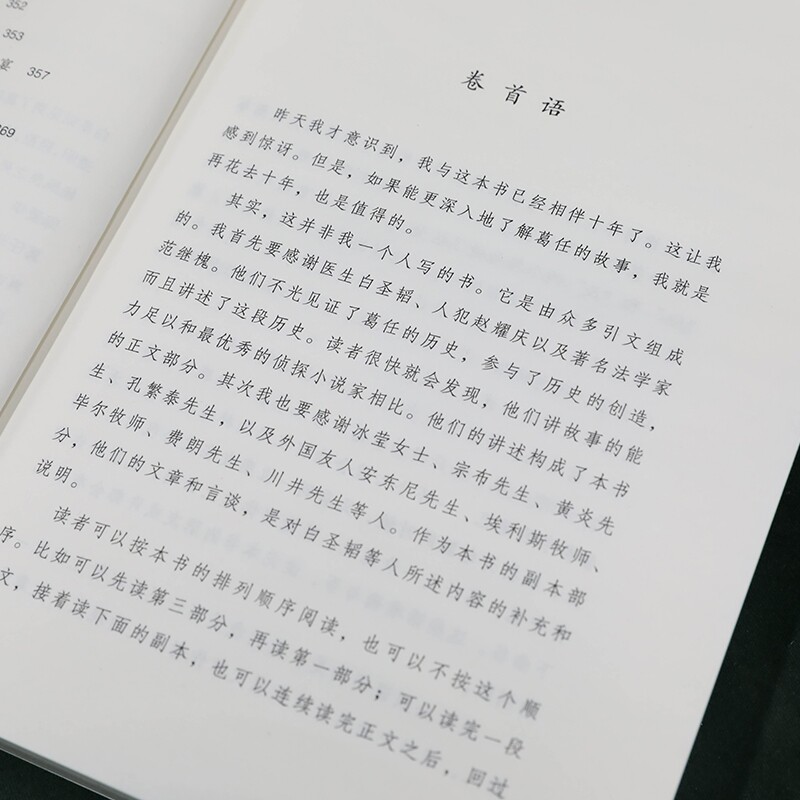 352
353
宴 357
卷首语
昨天我才意识到，我与这本书已经相伴十年了。这让我
感到惊讶。但是，如果能更深入地了解葛任的故事，我就是
再花去十年，也是值得的。
其实，这并非我一个人写的书。它是由众多引文组成
的。我首先要感谢医生白圣韬、人犯赵耀庆以及著名法学家
范继槐。他们不光见证了葛任的历史，参与了历史的创造，
而且讲述了这段历史。读者很快就会发现，他们讲故事的能
力足以和最优秀的侦探小说家相比。他们的讲述构成了本书
的正文部分。其次我也要感谢冰莹女士、宗布先生、黄炎先
生、孔繁泰先生，以及外国友人安东尼先生、埃利斯牧师、
毕尔牧师、费朗先生、川井先生等人。作为本书的副本部
分，他们的文章和言谈，是对白圣韬等人所述内容的补充和
说明。
读者可以按本书的排列顺序阅读，也可以不按这个顺
序。比如可以先读第三部分，再读第一部分；可以读完一段
文，接着读下面的副本，也可以连续读完正文之后，回过